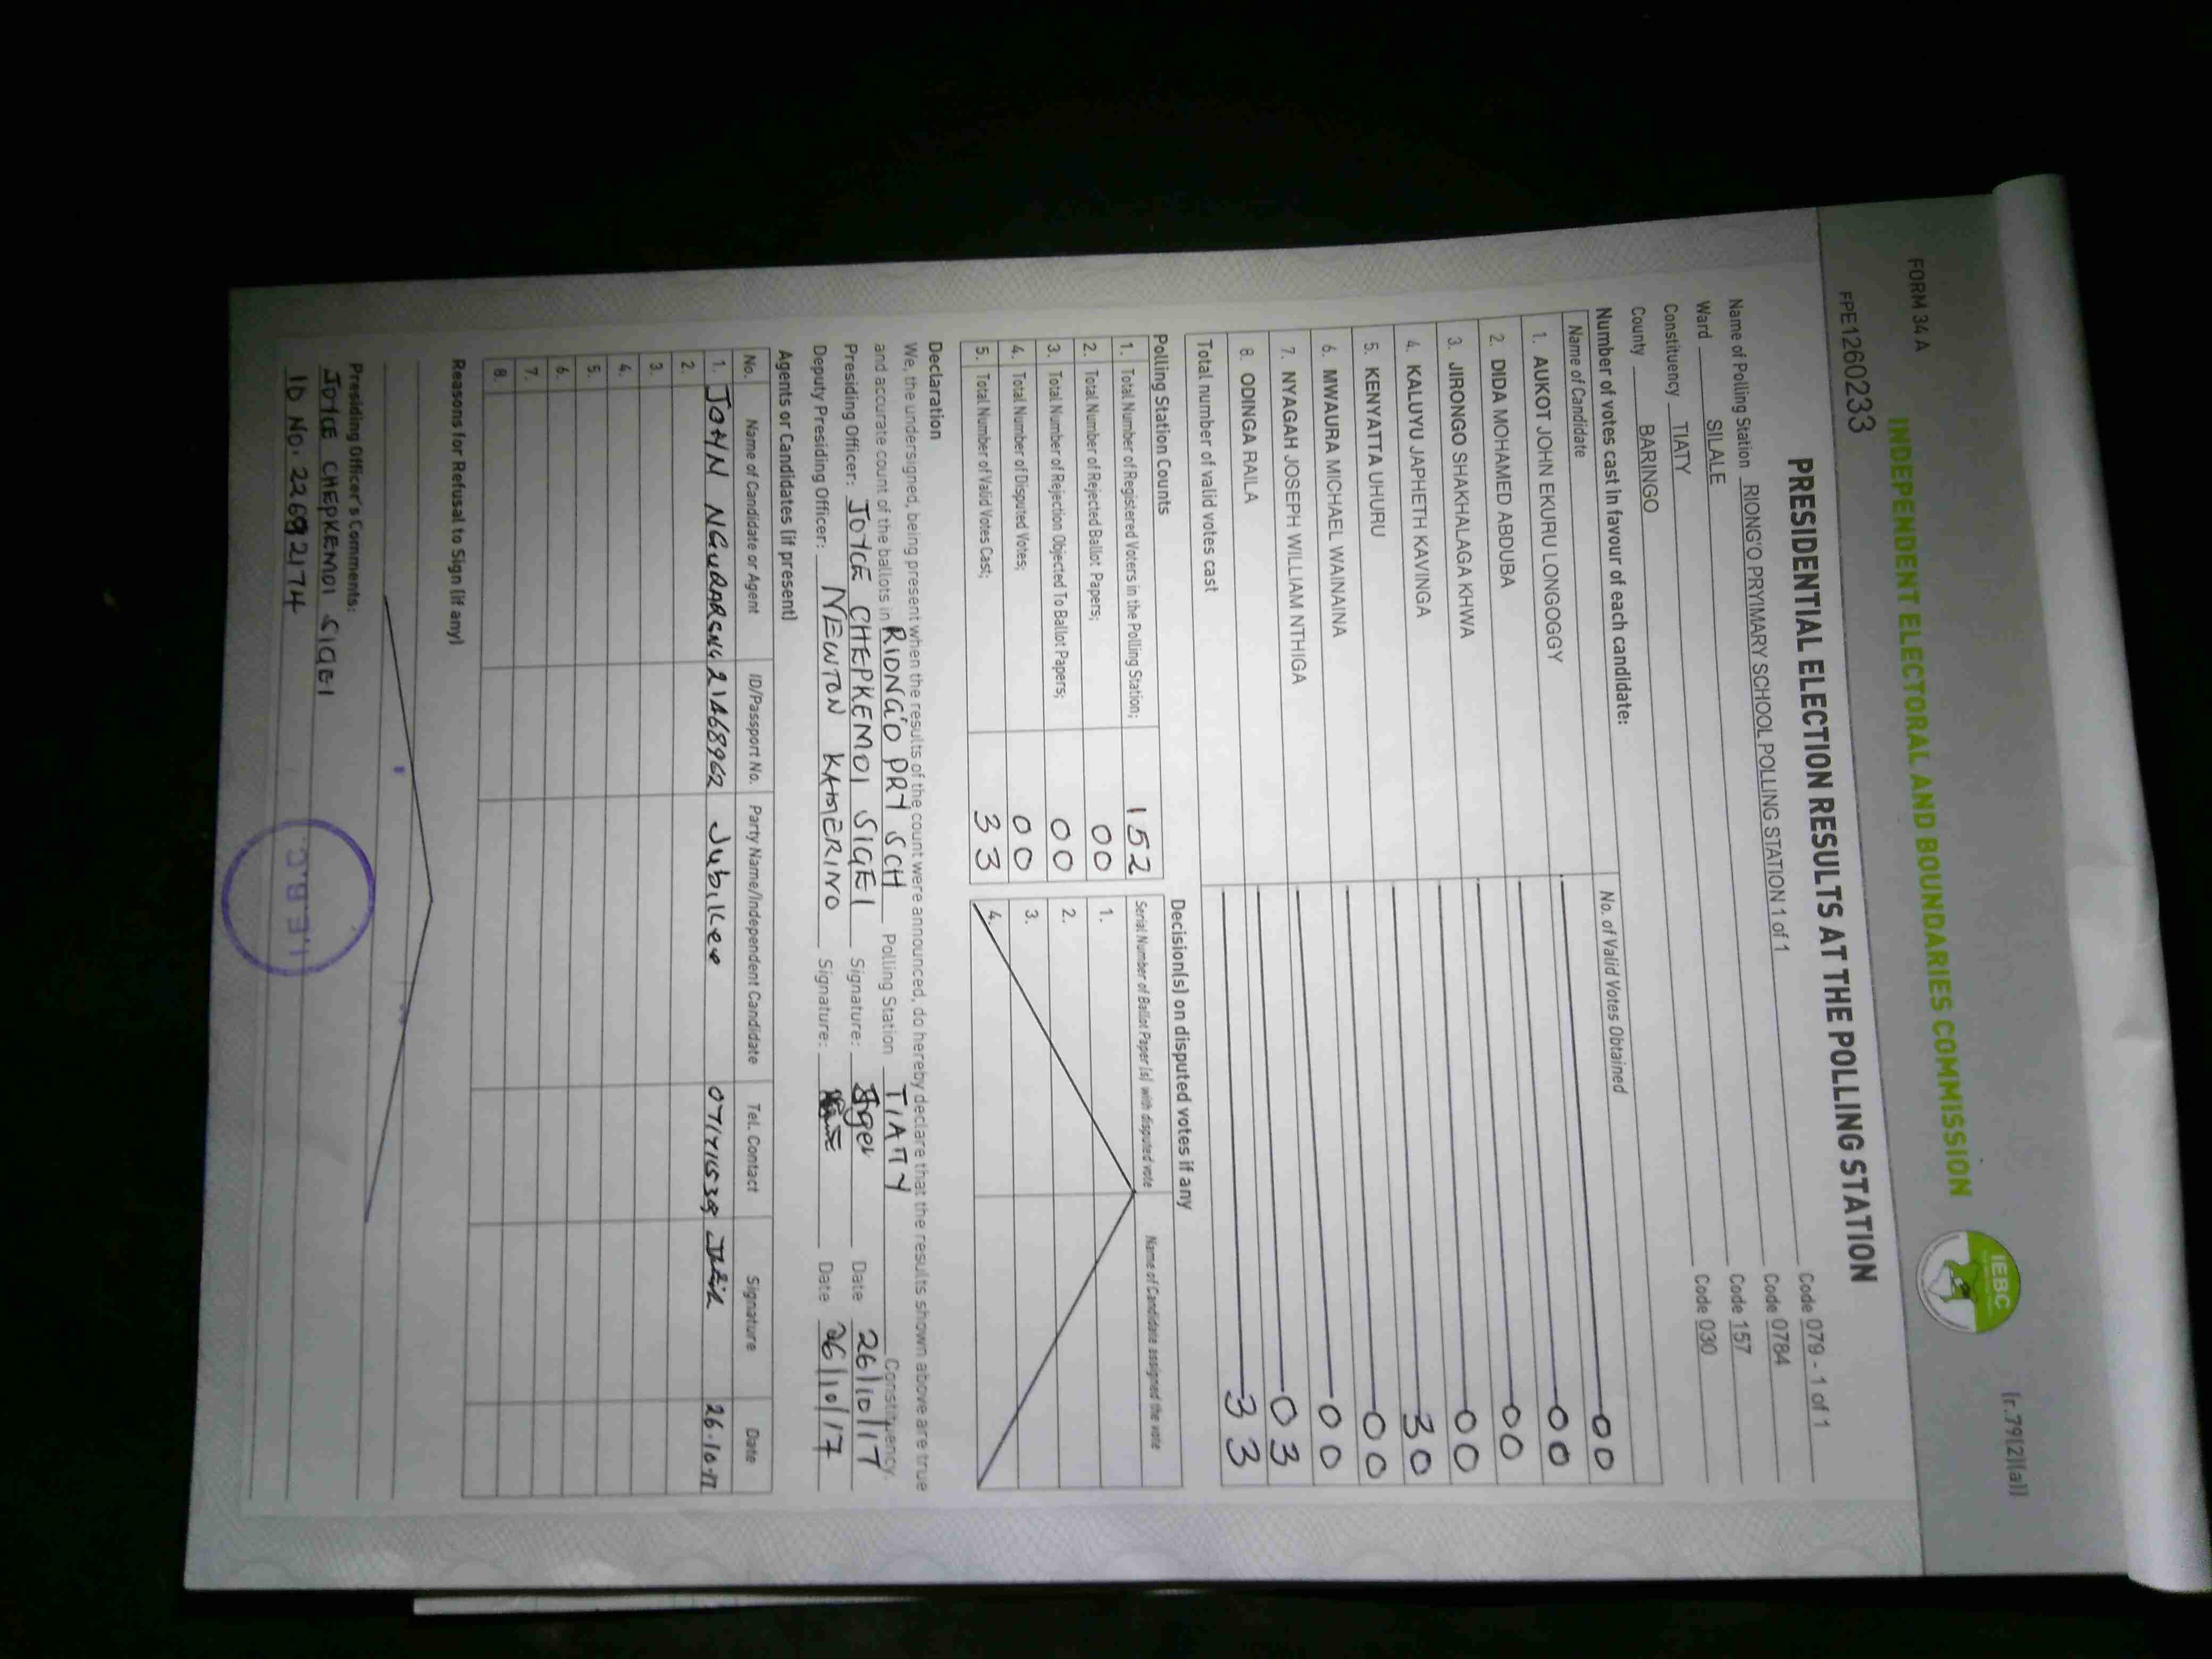 FORM 34 A
(r.79(2)(a))
INDEPENDENT ELECTORAL AND BOUNDARIES COMMISSION
IEBC
FPE1260233
PRESIDENTIAL ELECTION RESULTS AT THE POLLING STATION
Name of Polling Station RIONG'O PRYIMARY SCHOOL POLLING STATION 1 of 1 Code 079 - 1 of 1
Ward SILALE Code 0784
Constituency TIATY Code 157
County BARINGO Code 030
Number of votes cast in favour of each candidate:
Name of Candidate No. of Valid Votes Obtained
1. AUKOT JOHN EKURU LONGOGGY 00
2. DIDA MOHAMED ABDUBA 00
3. JIRONGO SHAKHALAGA KHWA 00
4. KALUYU JAPHETH KAVINGA 00
5. KENYATTA UHURU 30
6. MWAURA MICHAEL WAINAINA 00
7. NYAGAH JOSEPH WILLIAM NTHIGA 00
8. ODINGA RAILA 03
Total number of valid votes cast 33
Polling Station Counts
1. Total Number of Registered Voters in the Polling Station; 152
2. Total Number of Rejected Ballot Papers; 00
3. Total Number of Rejection Objected To Ballot Papers; 00
4. Total Number of Disputed Votes; 00
5. Total Number of Valid Votes Cast; 33
Decision(s) on disputed votes if any
Serial Number of Ballot Paper (s) with disputed vote Name of Candidate assigned the vote
1.
2.
3.
4.
Declaration
We, the undersigned, being present when the results of the count were announced, do hereby declare that the results shown above are true
and accurate count of the ballots in RIONG'O PRY SCH Polling Station TIATY Constituency.
Presiding Officer: JOYCE CHEPKEMOI SIGEI Signature: Date 26/10/17
Deputy Presiding Officer: NEWTON KAMERINO Signature: Date 26/10/17
Agents or Candidates (if present)
No. Name of Candidate or Agent ID/Passport No. Party Name/Independent Candidate Tel. Contact Signature Date
1. JOHN 21468962 Jubilee 26.10.17
2.
3.
4.
5.
6.
7.
8.
Reasons for Refusal to Sign (if any)
Presiding Officer's Comments:
JOYCE CHEPKEMOI SIGEI
ID NO. 22692174
I.E.B.C.